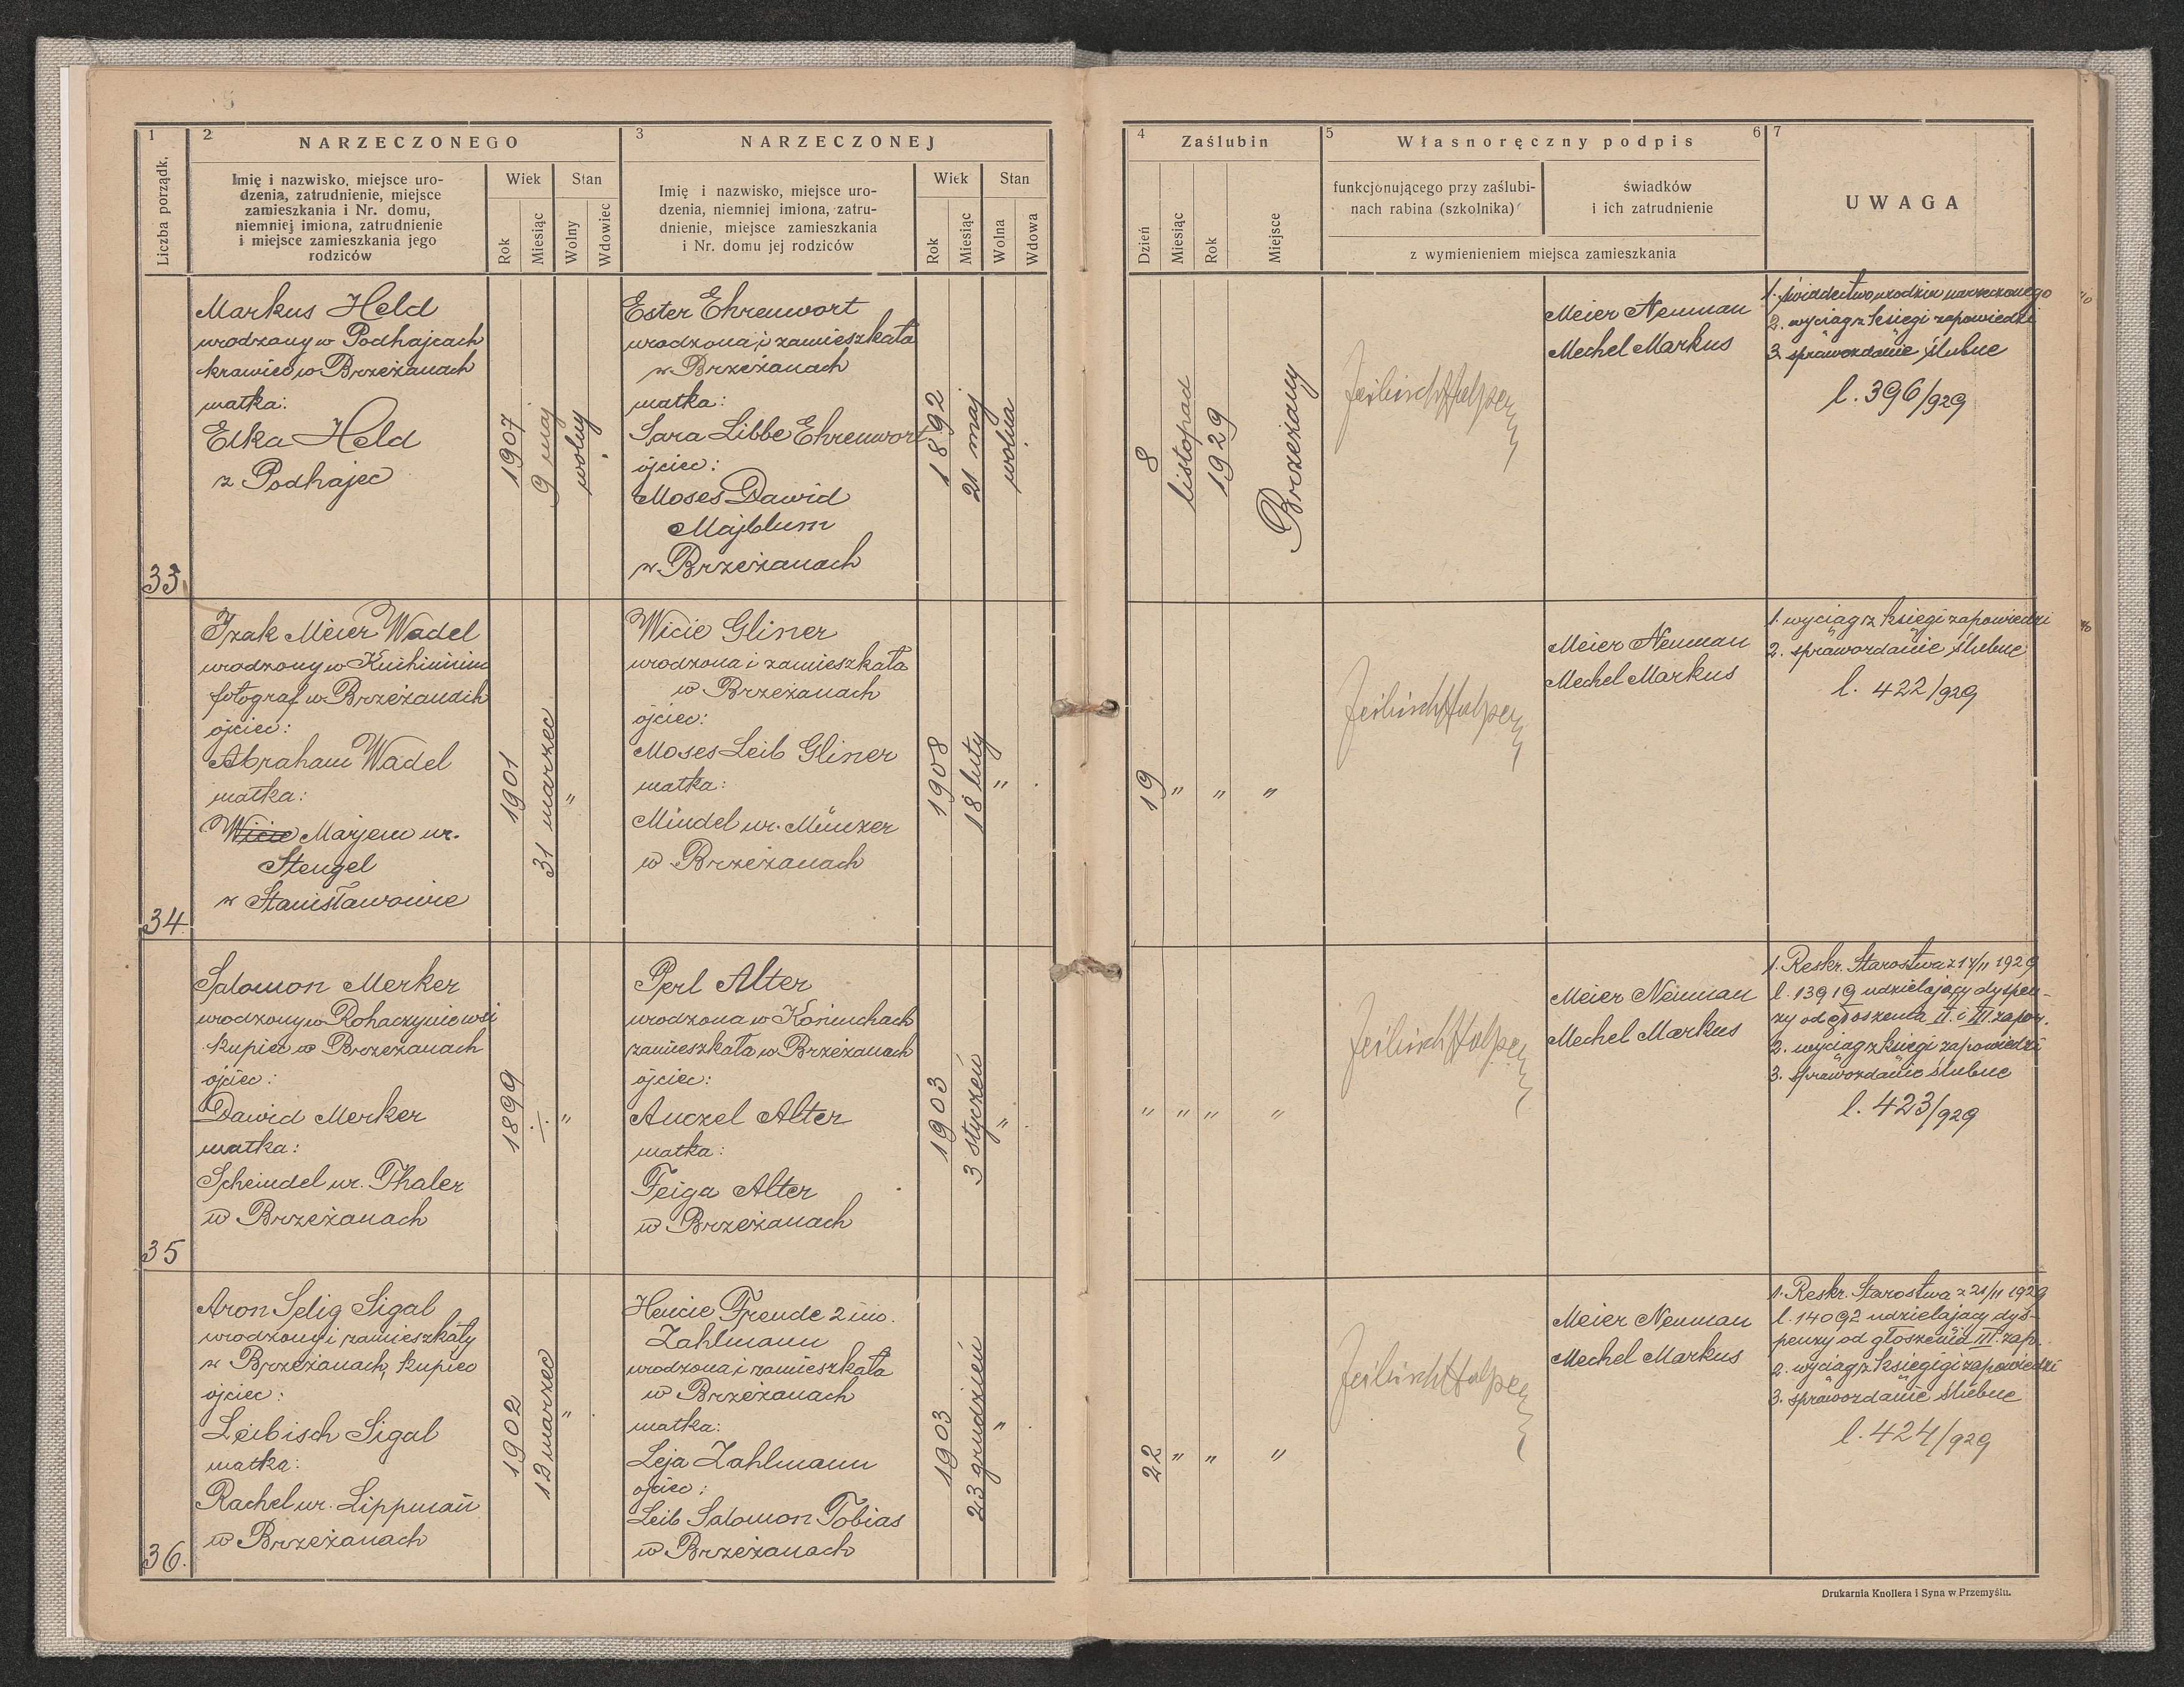 1
2
NARZECZONEGO
3
NARZECZONEJ
Liczba porządk.
Imię i nazwisko, miejsce uro-
dzenia, zatrudnienie, miejsce
zamieszkania i Nr. domu,
niemniej imiona, zatrudnienie
i miejsce zamieszkania jego
rodziców
Wiek
Stan
Rok
Miesiąc
Wolny
Wdowiec
Imię i nazwisko, miejsce uro-
dzenia, niemniej imiona, zatru-
dnienie, miejsce zamieszkania
i Nr. domu jej rodziców
Wiek
Stan
Rok
Miesiąc
Wolna
Wdowa
4
Zaślubin
5
Własnoręczny podpis
6
7
Dzień
Miesiąc
Rok
Miejsce
funkcjonującego przy zaślubi-
nach rabina (szkolnika)
świadków
i ich zatrudnienie
z wymienieniem miejsca zamieszkania
UWAGA
33
Markus Held
urodzony w Podhajcach
krawiec w Brzeżanach
matka:
Elka Held
z Podhajec
1907
9 maj
wolny
Ester Ehrenwort
urodzona i zamieszkała
w Brzeżanach
matka:
Sara Libbe Ehrenwort
ojciec:
Moses Dawid
Majblum
w Brzeżanach
1892
21 maj
wolna
8
listopad
1929
Brzeżany
Meier Neuman
Mechel Markus
1. świadectwo urodzin narzeczonego
2. wyciąg z księgi zapowiedzi
3. sprawozdanie ślubne
l. 396/929
34
Izak Meier Wadel
urodzony w
fotograf w Brzeżanach
ojciec:
Abraham Wadel
matka:
Wicie Marjem ur.
Stengel
w Stanisławowie
1901
31 marzec
"
Wicie Gliner
urodzona i zamieszkała
w Brzeżanach
ojciec:
Moses Leib Gliner
matka:
Mindel ur. Münzer
w Brzeżanach
1908
18 luty
"
19
"
"
"
Meier Neuman
Mechel Markus
1. wyciąg z księgi zapowiedzi
2. sprawozdanie ślubne
l. 422/929
35
Salomon Merker
urodzony w
kupiec w Brzeżanach
ojciec:
Dawid Merker
matka:
Scheindel ur. Thaler
w Brzeżanach
1899
"
Perl Alter
urodzona w Koniuchach
zamieszkała w Brzeżanach
ojciec:
Anczel Alter
matka:
Feiga Alter
w Brzeżanach
1903
3 styczeń
"
"
"
"
"
Meier Neuman
Mechel Markus
1. Reskr. Starostwa z 17/11 1929
l. 13919 udzielający dyspen-
zy od głoszenia II. i III. zapow.
2. wyciąg z księgi zapowiedzi
3. sprawozdanie ślubne
l. 423/929
36.
Aron Selig Sigal
urodzony i zamieszkały
w Brzeżanach, kupiec
ojciec:
Leibisch Sigal
matka:
Rachel ur. Lippman
w Brzeżanach
1902
12 marzec
"
Hencie Freude 2 im.
Zahlmann
urodzona i zamieszkała
w Brzeżanach
matka:
Leja Zahlmann
ojciec:
Leib Salomon Tobias
w Brzeżanach
1903
23 grudzień
"
22
"
"
"
Meier Neuman
Mechel Markus
1. Reskr. Starostwa z 21/11 1929
l. 14092 udzielający dys-
penzy od głoszenia III. zap.
2. wyciąg z księgigi zapowiedzi
3. sprawozdanie ślubne
l. 424/929
Drukarnia Knollera i Syna w Przemyślu.